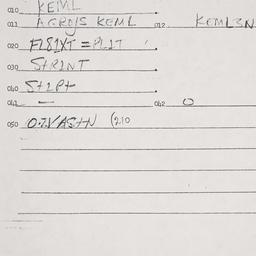 010 KEML
011 AGROJS KEML 012 KEML3N
020 FI8IXT = PLIT
030 StRINT
040 St2Pt
041 — 042 O
050 (210